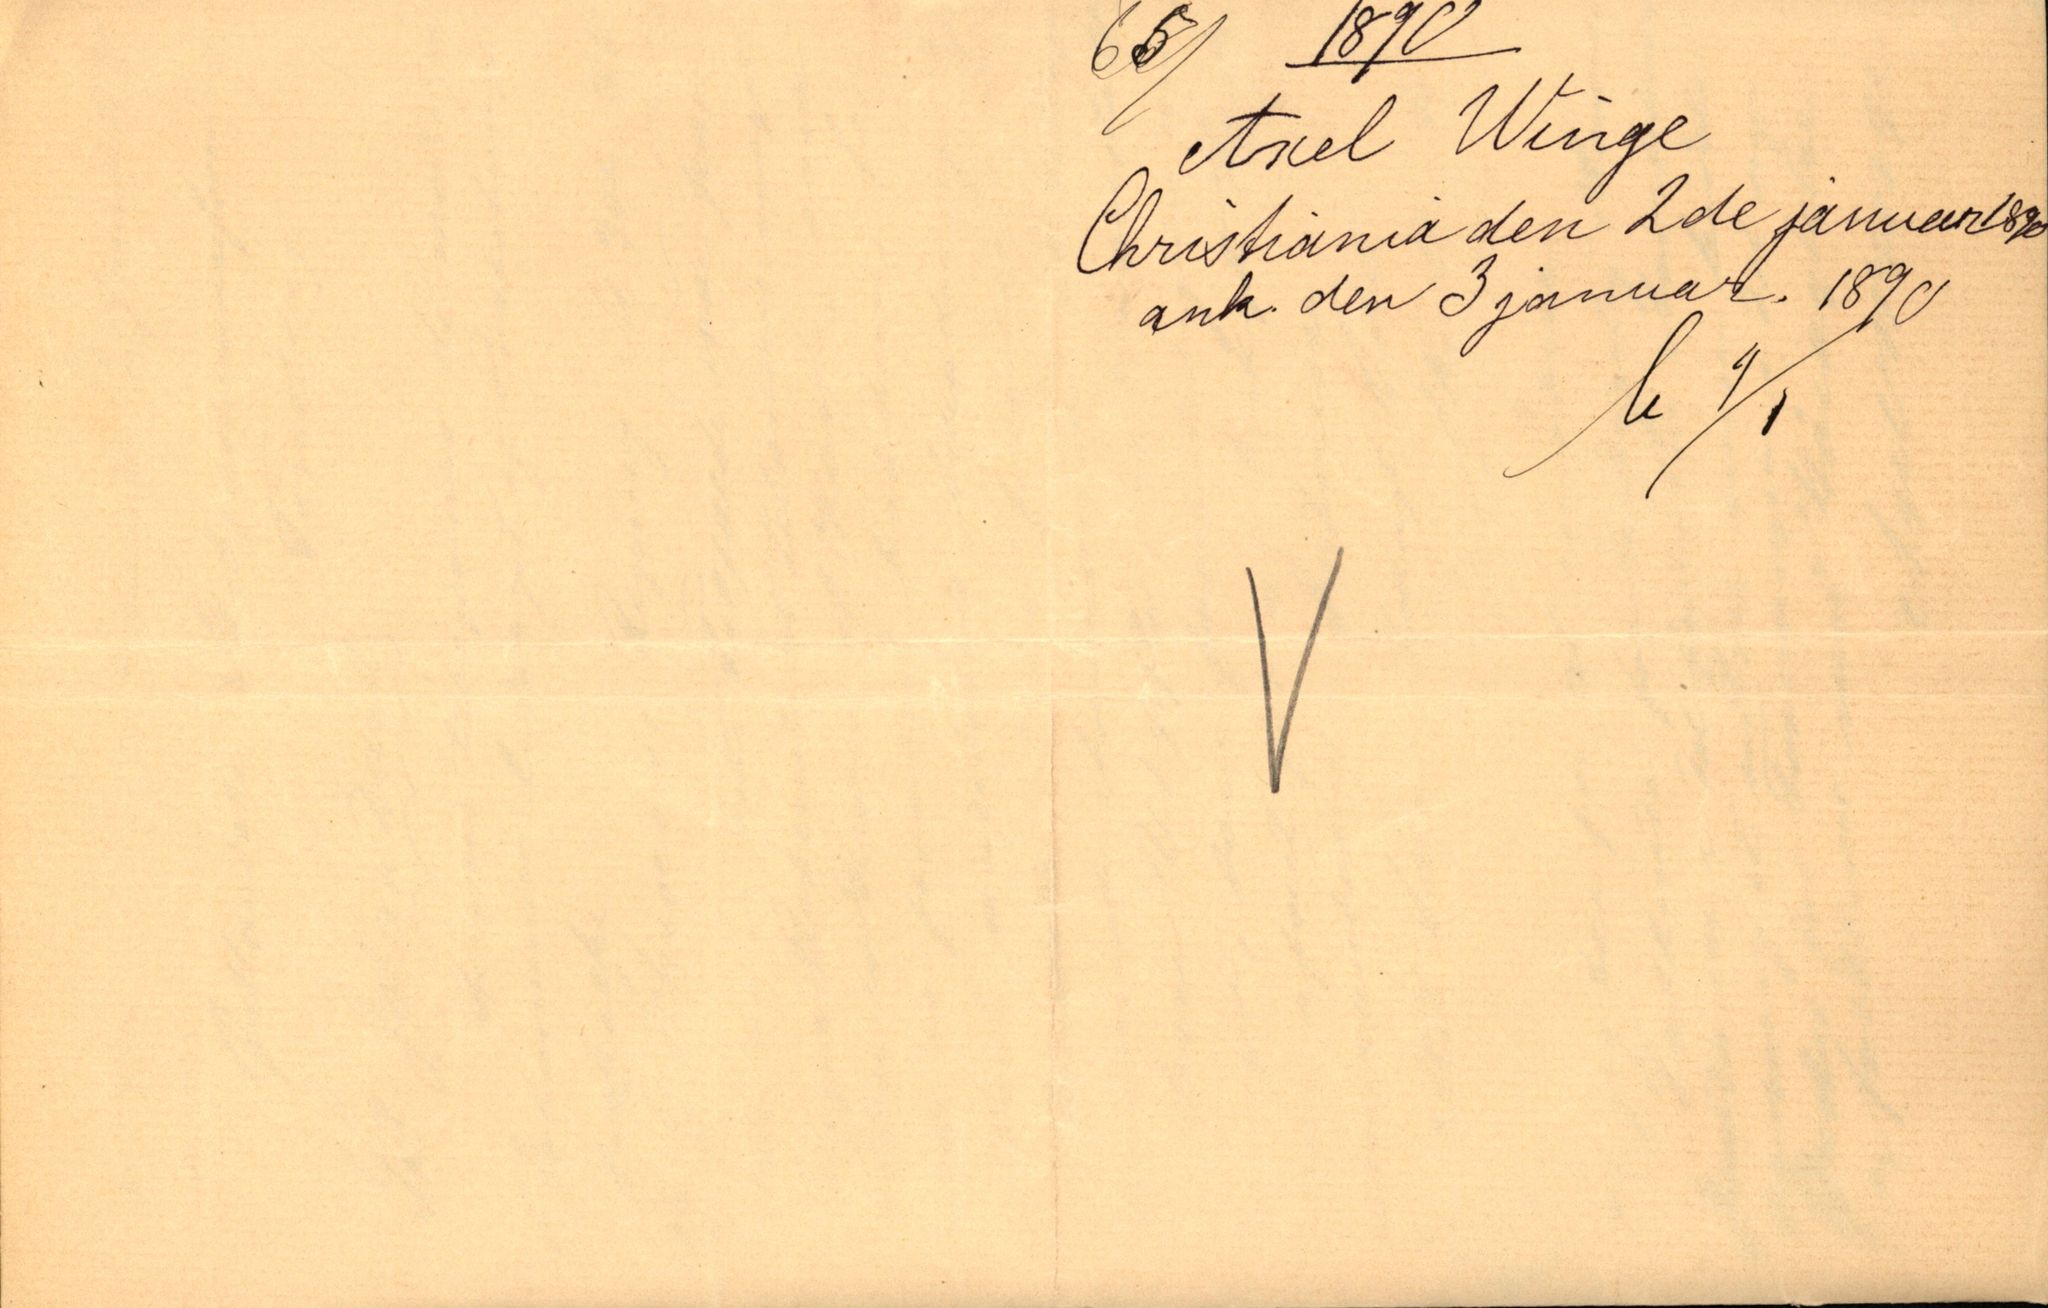 65/ 1890
Axel Winge
Christiania den 2de januar 1890
ank. den 3 januar. 1890
b 9/1
V